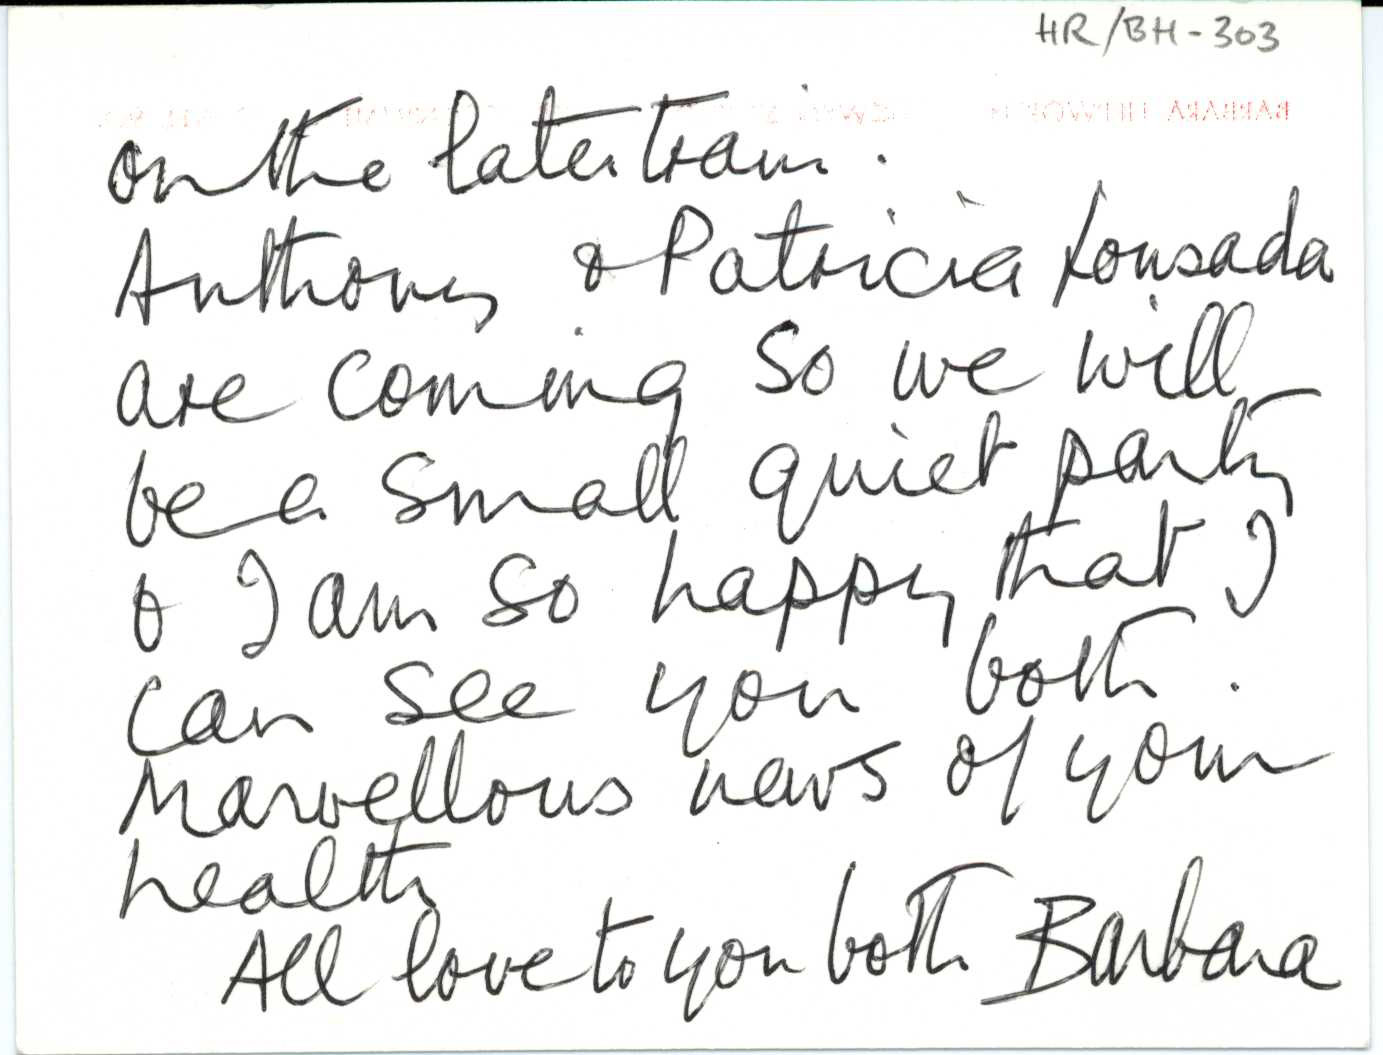 HR/BH-303
BARBARA HEPWORTH
on the later train.
Anthony & Patricia Lousada
are coming so we will
be a small quiet party
& I am so happy that I
can see you both.
Marvellous news of your
health
All love to you both Barbara